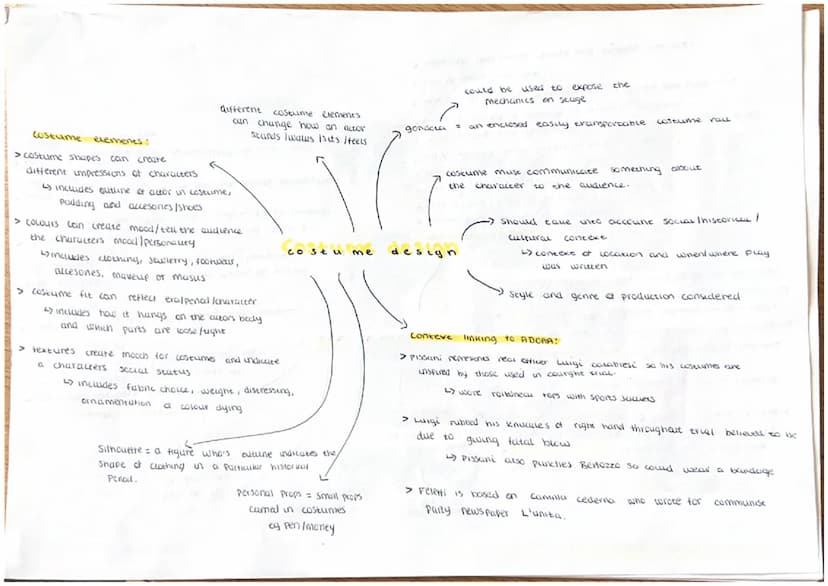 could be used to expose the
mechanics on stage
gondola = an enclosed easily transportable costume rail
different costume elements
can change how an actor
stands/walks/sits/feels
costume must communicate something about
the character to the audience.
costume elements:
> costume shapes can create
different impressions of characters
↳ includes outline of actor in costume,
padding and accesories/shoes
> colours can create mood/tell the audience
the characters mood/personality
↳ includes clothing, jewellery, footwear,
accesories, makeup or masks
> costume fit can reflect era/period/character
↳ includes how it hangs on the actors body
and which parts are loose/tight
> textures create moods for costumes and indicate
a characters social status
↳ includes fabric choice, weight, distressing,
ornamentation & colour dying
costume design
should take into account social/historical/
cultural context
↳ context of location and when/where play
was written
style and genre of production considered
context linking to ADOAA:
> Pissani represents real officer Luigi so his costumes are
inspired by those used in trial.
↳ wore rollneck tops with sports jackets
> Luigi rubbed his knuckles of right hand throughout trial believed to be
due to giving fatal blow
↳ Pissani also punches Bertozzo so could wear a bandage
> Feletti is based on Camilla Cederna who wrote for communist
party newspaper L'unita.
Silhouette = a figure who's outline indicates the
shape of clothing in a particular historical
period.
personal props = small props
carried in costumes
eg pen/money